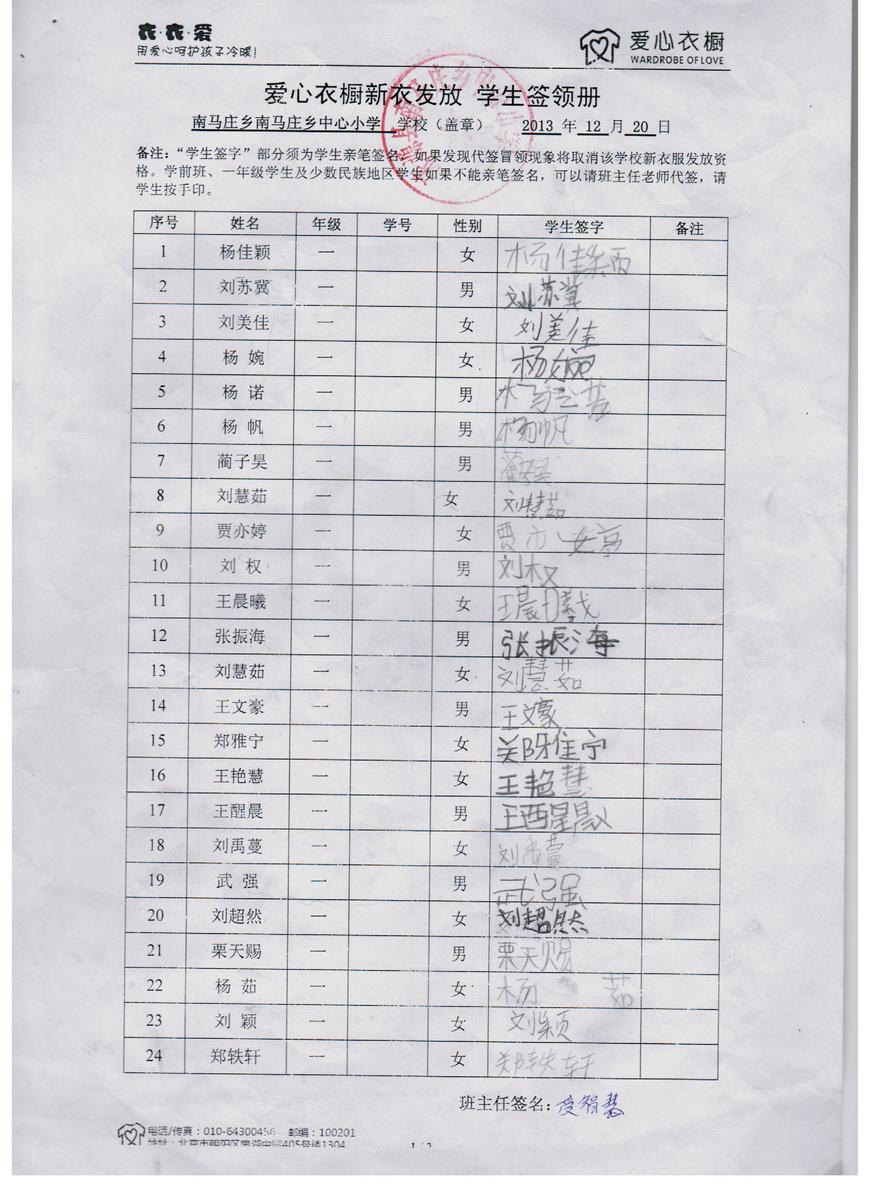 衣·衣·爱
用爱心呵护孩子冷暖!
爱心衣橱
WARDROBE OF LOVE
爱心衣橱新衣发放 学生签领册
南马庄乡南马庄乡中心小学 学校（盖章） 2013 年 12 月 20 日
备注："学生签字"部分须为学生亲笔签名，如果发现代签冒领现象将取消该学校新衣服发放资
格。学前班、一年级学生及少数民族地区学生如果不能亲笔签名，可以请班主任老师代签，请
学生按手印。
序号 姓名 年级 学号 性别 学生签字 备注
1 杨佳颖 一 女 杨佳颖
2 刘苏冀 一 男 刘苏冀
3 刘美佳 一 女 刘美佳
4 杨 婉 一 女 杨婉
5 杨 诺 一 男 杨诺
6 杨 帆 一 男 杨帆
7 蔺子昊 一 男 蔺子昊
8 刘慧茹 一 女 刘慧茹
9 贾亦婷 一 女 贾亦婷
10 刘 权 一 男 刘权
11 王晨曦 一 女 王晨曦
12 张振海 一 男 张振海
13 刘慧茹 一 女 刘慧茹
14 王文豪 一 男 王文豪
15 郑雅宁 一 女 郑雅宁
16 王艳慧 一 女 王艳慧
17 王醒晨 一 男 王醒晨
18 刘禹蔓 一 女 刘禹蔓
19 武 强 一 男 武强
20 刘超然 一 女 刘超然
21 栗天赐 一 男 栗天赐
22 杨 茹 一 女 杨 茹
23 刘 颖 一 女 刘颖
24 郑轶轩 一 女 郑轶轩
班主任签名:
电话/传真：010-64300456 邮编：100201
地址：北京市朝阳区南湖中园405号楼1304
1 / 2